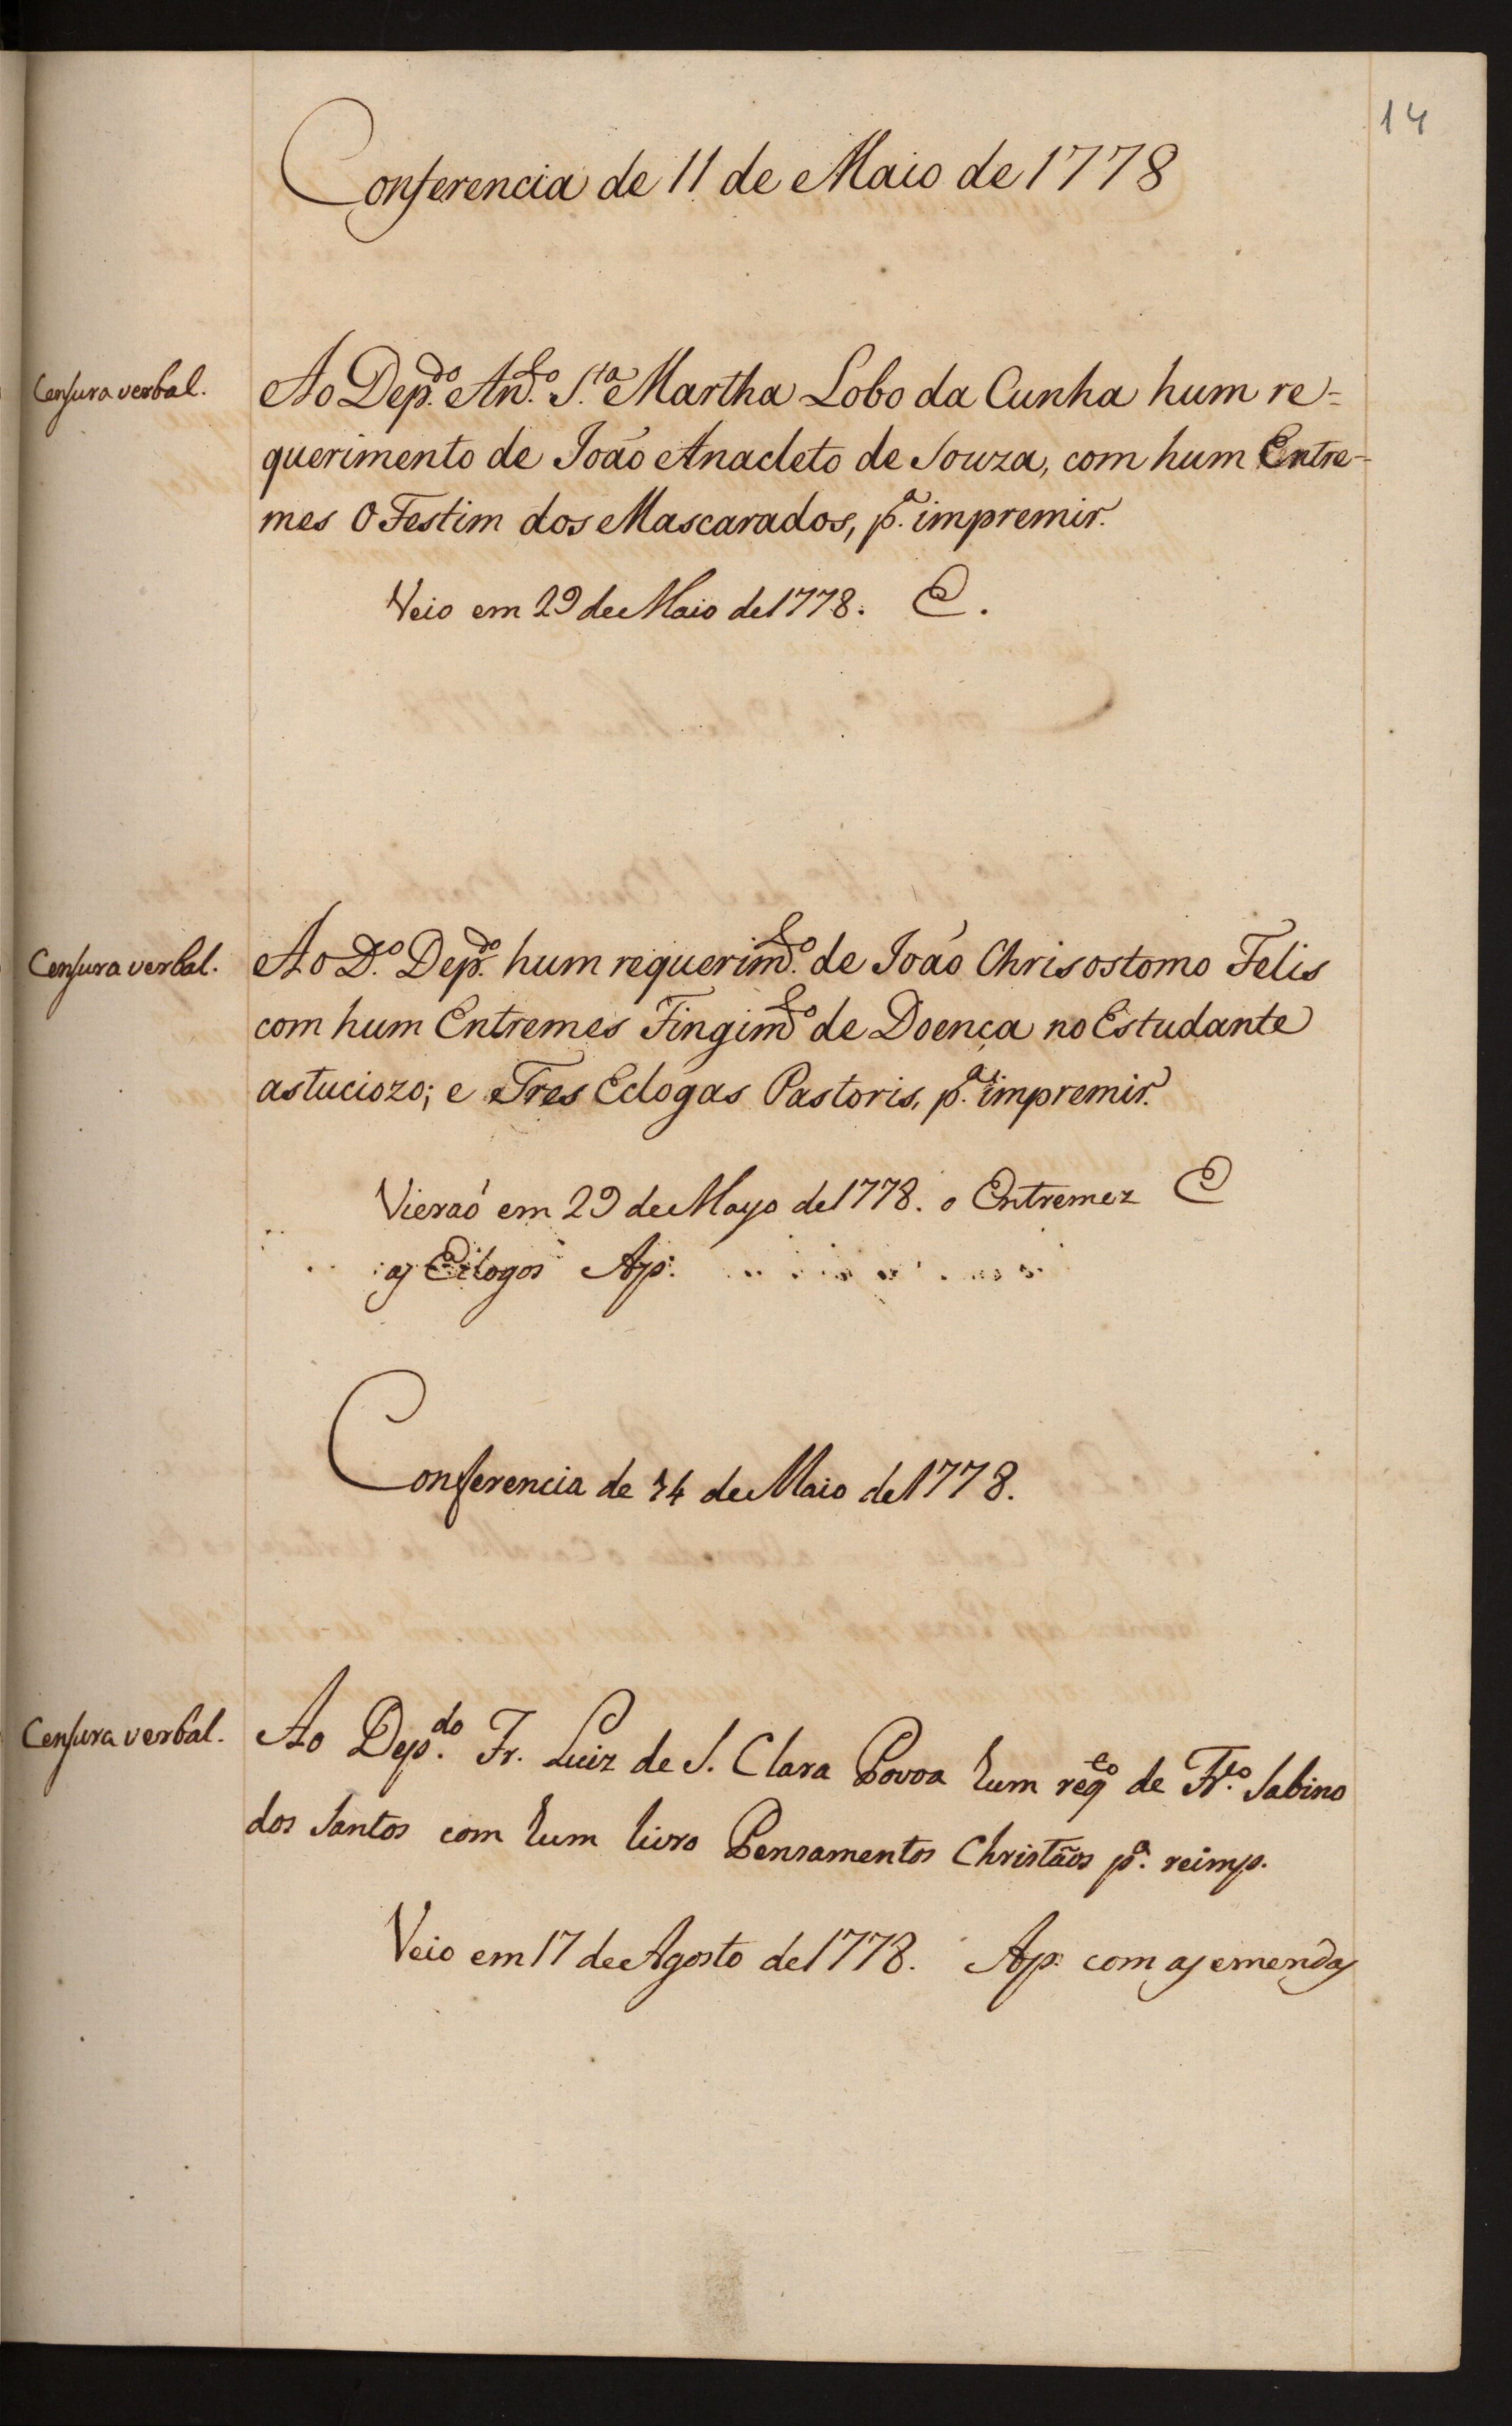 14
Conferencia de 11 de Maio de 1778
Censura verbal.
Ao Dep.do An.to S.ta Martha Lobo da Cunha hum re=
querimento de João Anacleto de Souza, com hum Entre-
mes O Festim dos Mascarados, p.a impremir.
Veio em 29 de Maio de 1778. E.
Censura verbal.
Ao D.o Dep.do hum requerim.to de João Chrisostomo Felis
com hum Entremes Fingim.to de Doença no Estudante
astuciozo; e Tres Eclogas Pastoris, p.a impremir.
Vieraó em 29 de Mayo de 1778. o Entremez E
as Eclogas Ap.
Conferencia de 14 de Maio de 1778.
Censura verbal.
Ao Dep.do Fr. Luiz de S. Clara Povoa hum reqto de Fr.co Sabino
dos Santos com hum livro Pensamentos Christãos p.a reimp.
Veio em 17 de Agosto de 1778. Ap. com as emendas